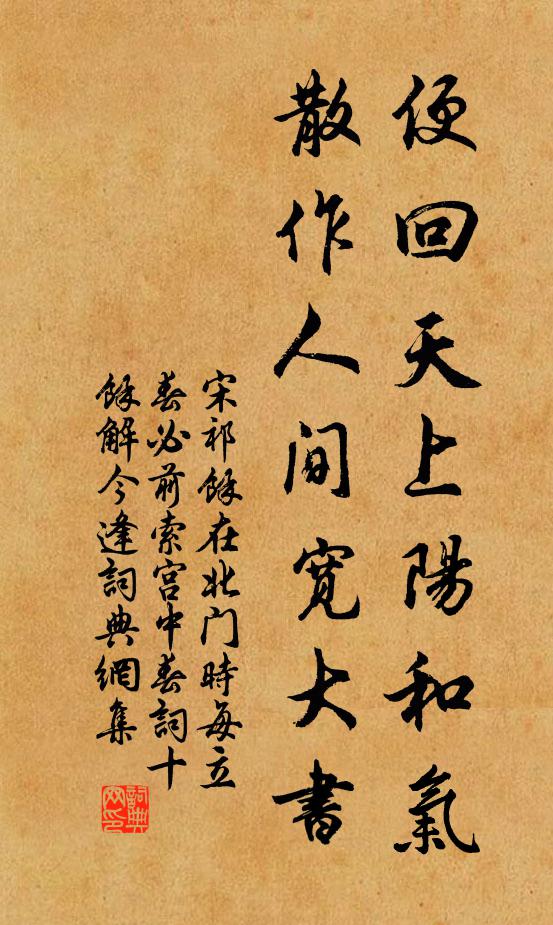 便回天上陽和氣
散作人间寬大書
宋祁餘在北门時每立
春必前索宫中春詞十
餘解今逢詞典網集
詞典網印